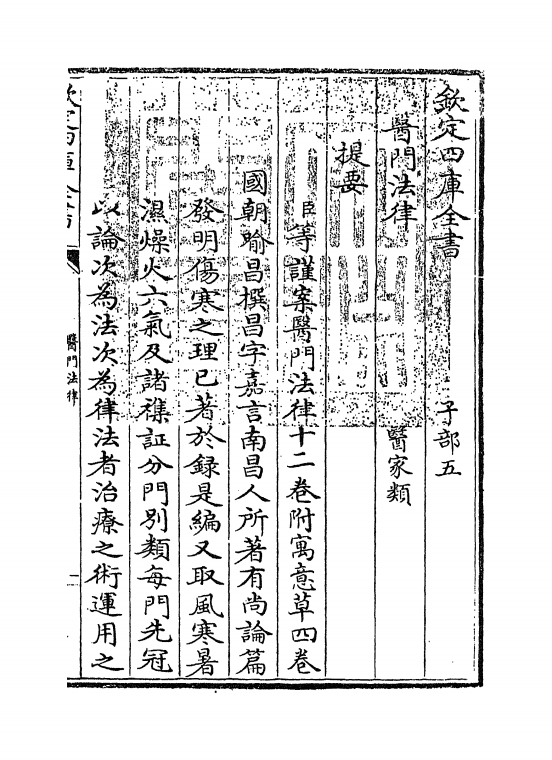 欽定四庫全書　　子部五
醫門法律　　醫家類
提要
臣等謹案醫門法律十二卷附寓意草四卷
國朝喻昌撰昌字嘉言南昌人所著有尚論篇
發明傷寒之理已著於録是編又取風寒暑
濕燥火六氣及諸襍証分門別類每門先冠
以論次為法次為律法者治療之術運用之
醫門法律